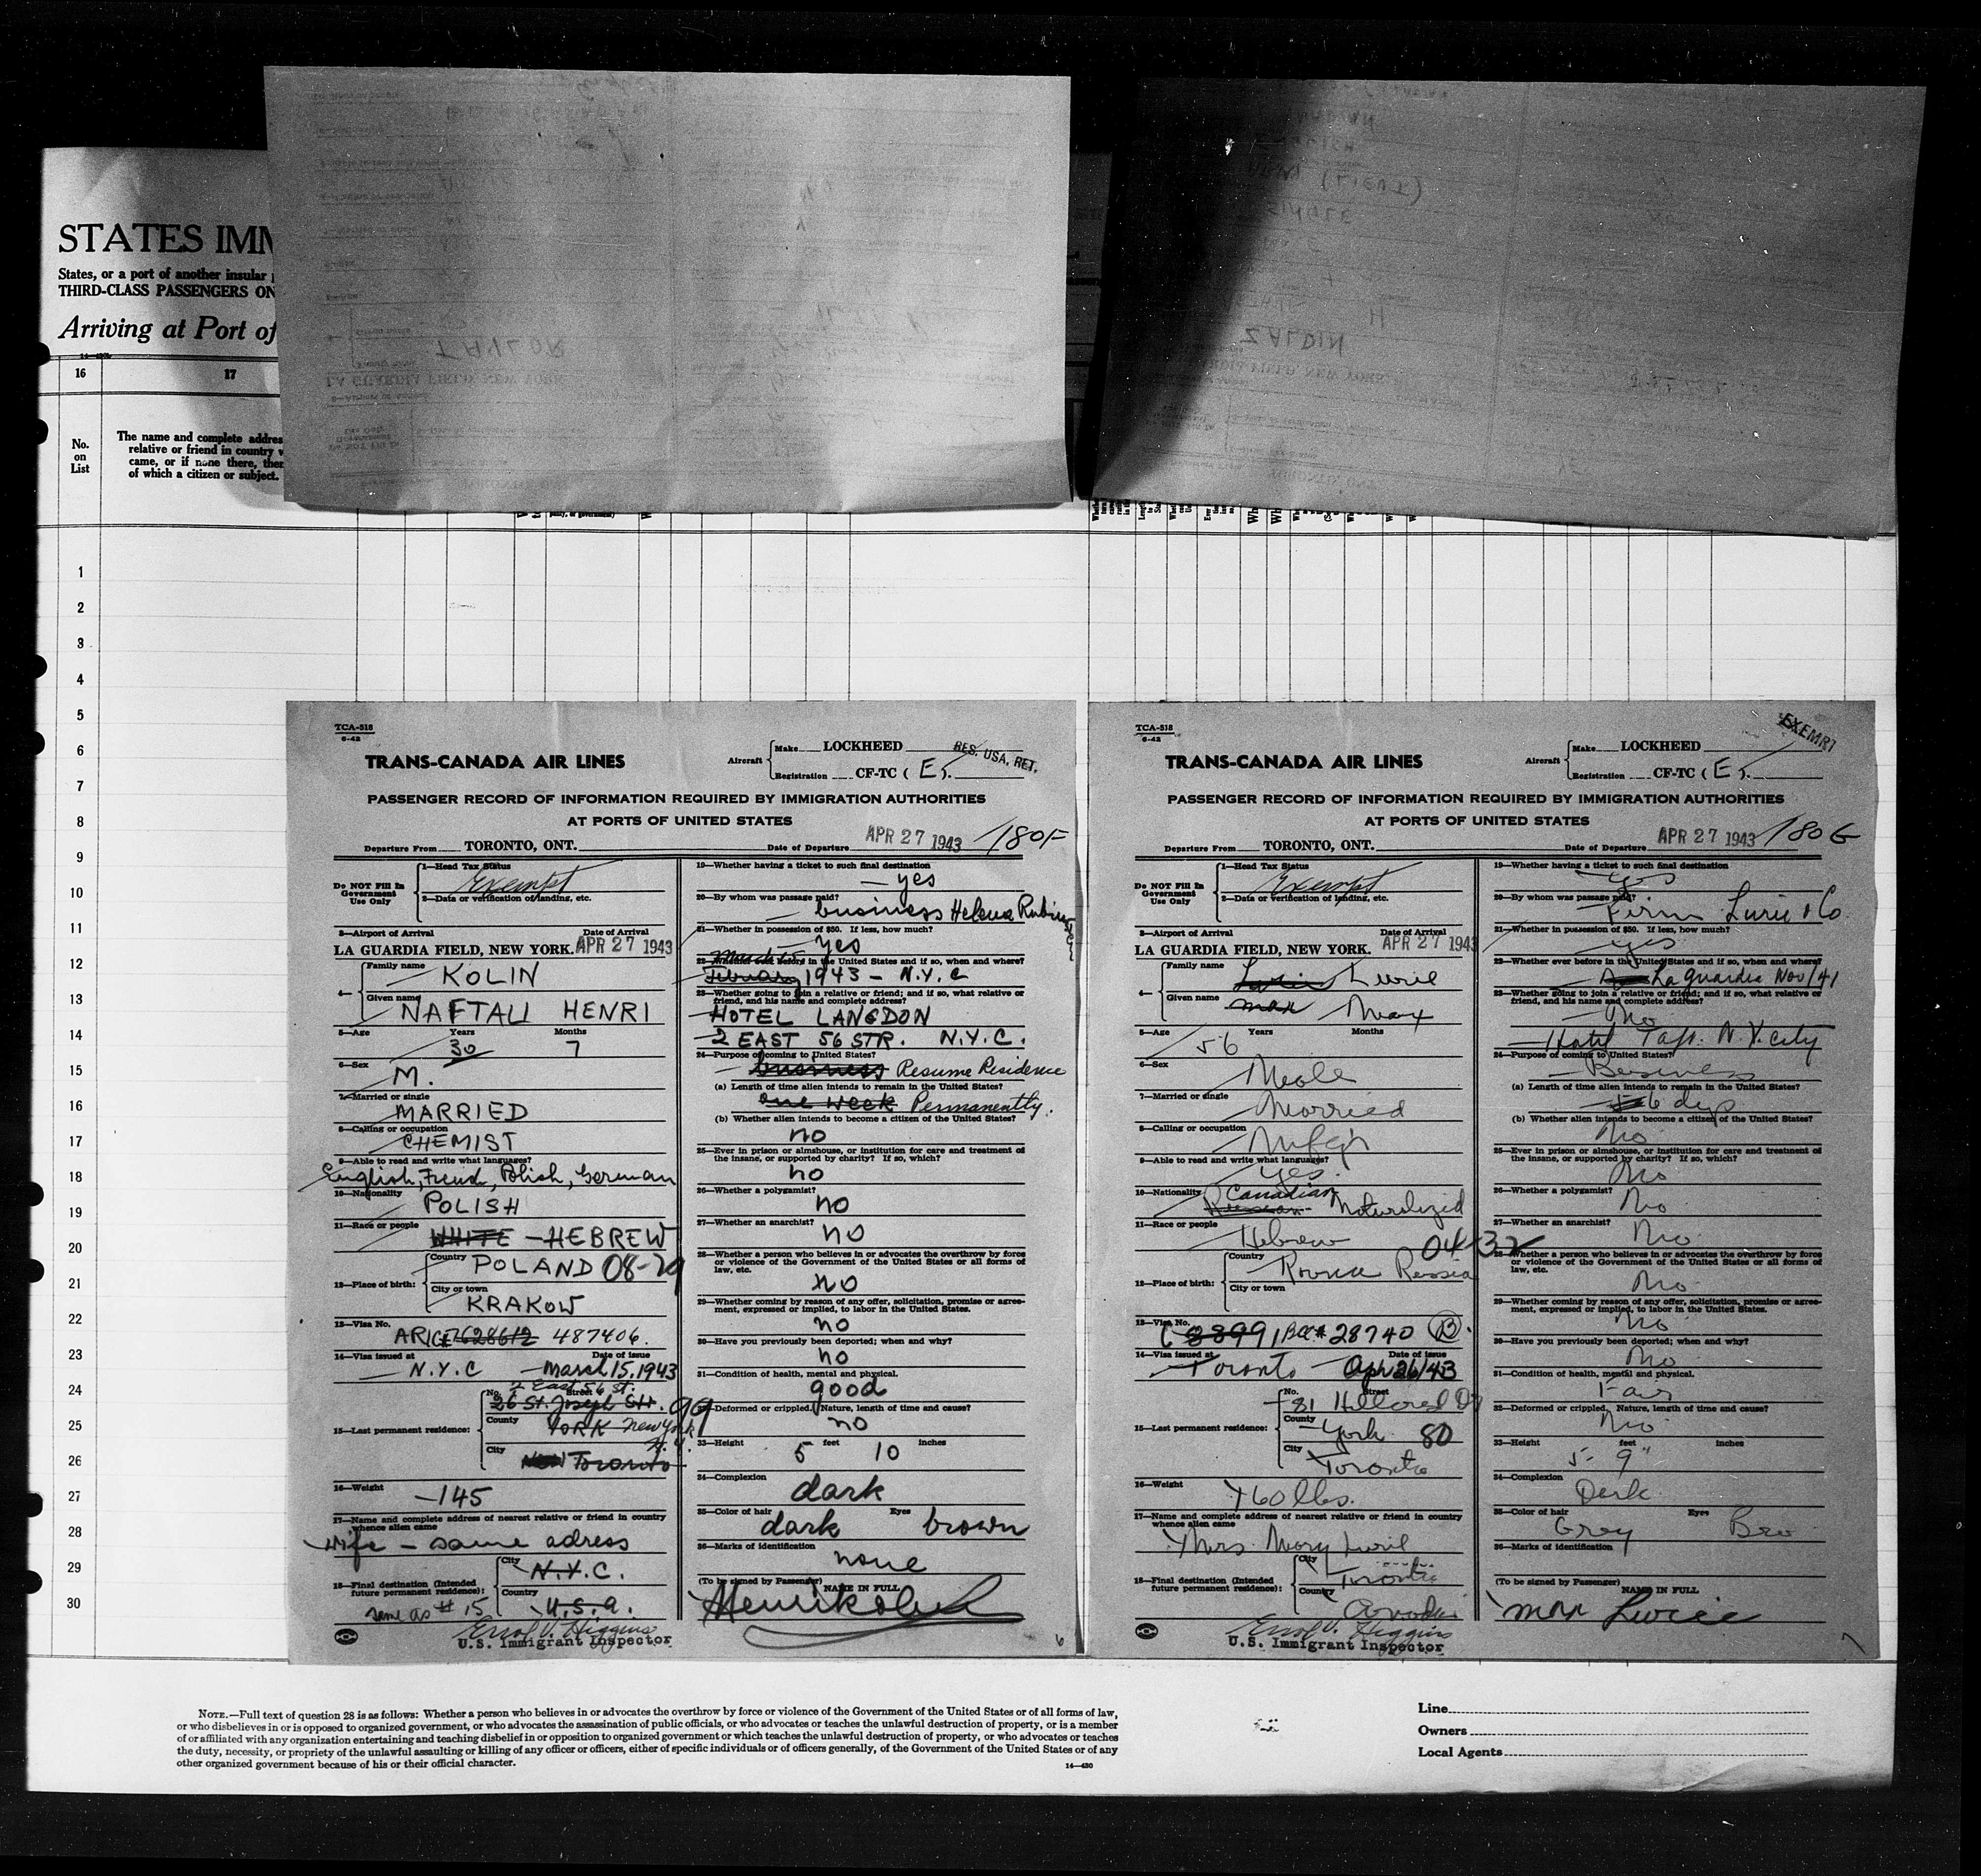 STATES IMM
States, or a port of another insular
THIRD-CLASS PASSENGERS ON
Arriving at Port of
16 17
No.
on
List
The name and complete addres
relative or friend in country
came, or if none there, then
of which a citizen or subject.
TAYLOR
LA GUARDIA FIELD, NEW YORK
ZALDIN
H
(LIEUT)
1
2
3
4
5
6
7
8
9
10
11
12
13
14
15
16
17
18
19
20
21
22
23
24
25
26
27
28
29
30
TCA-518
6-42
TRANS-CANADA AIR LINES
Aircraft
Make LOCKHEED
Registration CF-TC ( E ).
RES. USA, RET.
PASSENGER RECORD OF INFORMATION REQUIRED BY IMMIGRATION AUTHORITIES
AT PORTS OF UNITED STATES
Departure From TORONTO, ONT. Date of Departure APR 27 1943 180F
Do NOT Fill In
Government
Use Only
1—Head Tax Status
Exempt
2—Data or verification of landing, etc.
3—Airport of Arrival Date of Arrival
LA GUARDIA FIELD, NEW YORK. APR 27 1943
4—
Family name
KOLIN
Given name
NAFTALI HENRI
5—Age Years Months
30 7
6—Sex
M.
7—Married or single
MARRIED
8—Calling or occupation
CHEMIST
9—Able to read and write what languages?
English, French, Polish, German
10—Nationality
POLISH
11—Race or people
WHITE - HEBREW
12—Place of birth:
Country
POLAND 08-29
City or town
KRAKOW
13—Visa No.
487406.
14—Visa issued at Date of issue
N.Y.C - March 15, 1943
15—Last permanent residence:
No. Street
2 East 56 St.
26 St. Joseph Str. 99
County
YORK New York
N.Y.
City
Toronto
16—Weight
145
17—Name and complete address of nearest relative or friend in country
whence alien came
wife - same adress
18—Final destination (Intended
future permanent residence):
same as # 15
City
N.Y.C.
Country
U.S.A.
Errol V. Higgins
U.S. Immigrant Inspector
19—Whether having a ticket to such final destination
yes
20—By whom was passage paid?
business Helena Rubinstein
21—Whether in possession of $50. If less, how much?
yes
22—Whether ever before in the United States and if so, when and where?
March 15
February 1943 - N.Y.C
23—Whether going to join a relative or friend; and if so, what relative or
friend, and his name and complete address?
HOTEL LANGDON
2 EAST 56 STR. N.Y.C.
24—Purpose of coming to United States?
business Resume Residence
(a) Length of time alien intends to remain in the United States?
one week Permanently.
(b) Whether alien intends to become a citizen of the United States?
no
25—Ever in prison or almshouse, or institution for care and treatment of
the insane, or supported by charity? If so, which?
no
26—Whether a polygamist?
no
27—Whether an anarchist?
no
28—Whether a person who believes in or advocates the overthrow by force
or violence of the Government of the United States or all forms of
law, etc.
no
29—Whether coming by reason of any offer, solicitation, promise or agree-
ment, expressed or implied, to labor in the United States.
no
30—Have you previously been deported; when and why?
no
31—Condition of health, mental and physical.
good
32—Deformed or crippled. Nature, length of time and cause?
no
33—Height feet inches
5 10
34—Complexion
dark
35—Color of hair Eyes
dark brown
36—Marks of identification
none
(To be signed by Passenger) NAME IN FULL
Henri Kolin
6
TCA-518
6-42
TRANS-CANADA AIR LINES
Aircraft
Make LOCKHEED
Registration CF-TC ( E ).
EXEMPT
PASSENGER RECORD OF INFORMATION REQUIRED BY IMMIGRATION AUTHORITIES
AT PORTS OF UNITED STATES
Departure From TORONTO, ONT. Date of Departure APR 27 1943 180G
Do NOT Fill In
Government
Use Only
1—Head Tax Status
Exempt
2—Data or verification of landing, etc.
3—Airport of Arrival Date of Arrival
LA GUARDIA FIELD, NEW YORK. APR 27 1943
4—
Family name
Lurie
Given name
max Max
5—Age Years Months
56
6—Sex
Male
7—Married or single
Married
8—Calling or occupation
Mfgr
9—Able to read and write what languages?
yes.
10—Nationality
Canadian
Russian Naturalized
11—Race or people
Hebrew
04-32
12—Place of birth:
Country
Russia
City or town
13—Visa No.
28740 B.
14—Visa issued at Date of issue
Toronto Apr 26/43
15—Last permanent residence:
No. Street
81 Hillcrest Dr
County
York 80
City
Toronto
16—Weight
160 lbs.
17—Name and complete address of nearest relative or friend in country
whence alien came
Mrs Mary Lurie
18—Final destination (Intended
future permanent residence):
City
Toronto
Country
Canada
Errol V. Higgins
U.S. Immigrant Inspector
19—Whether having a ticket to such final destination
yes
20—By whom was passage paid?
Firm Lurie & Co.
21—Whether in possession of $50. If less, how much?
yes
22—Whether ever before in the United States and if so, when and where?
La guardia Nov/41
23—Whether going to join a relative or friend; and if so, what relative or
friend, and his name and complete address?
no
Hotel Taft. N.Y. City
24—Purpose of coming to United States?
Business
(a) Length of time alien intends to remain in the United States?
6 days
(b) Whether alien intends to become a citizen of the United States?
No
25—Ever in prison or almshouse, or institution for care and treatment of
the insane, or supported by charity? If so, which?
No
26—Whether a polygamist?
No
27—Whether an anarchist?
No
28—Whether a person who believes in or advocates the overthrow by force
or violence of the Government of the United States or all forms of
law, etc.
No
29—Whether coming by reason of any offer, solicitation, promise or agree-
ment, expressed or implied, to labor in the United States.
No
30—Have you previously been deported; when and why?
No
31—Condition of health, mental and physical.
Fair
32—Deformed or crippled. Nature, length of time and cause?
No
33—Height feet inches
5- 9"
34—Complexion
Dark
35—Color of hair Eyes
Grey Bro
36—Marks of identification
(To be signed by Passenger) NAME IN FULL
max Lurie
7
NOTE.—Full text of question 28 is as follows: Whether a person who believes in or advocates the overthrow by force or violence of the Government of the United States or of all forms of law,
or who disbelieves in or is opposed to organized government, or who advocates the assassination of public officials, or who advocates or teaches the unlawful destruction of property, or is a member
of or affiliated with any organization entertaining and teaching disbelief in or opposition to organized government or which teaches the unlawful destruction of property, or who advocates or teaches
the duty, necessity, or propriety of the unlawful assaulting or killing of any officer or officers, either of specific individuals or of officers generally, of the Government of the United States or of any
other organized government because of his or their official character.
14—430
Line
Owners
Local Agents